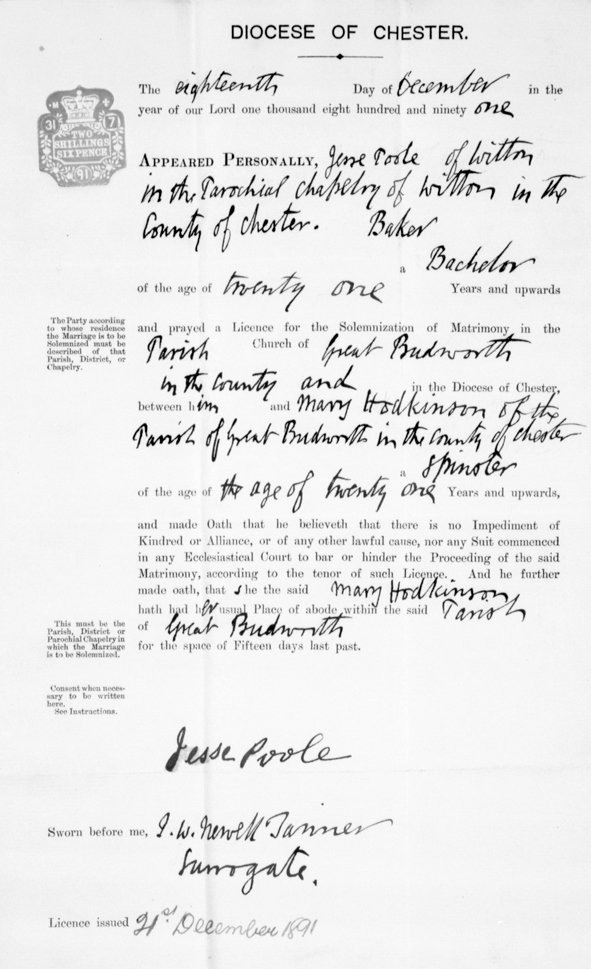 DIOCESE OF CHESTER.
The eighteenth Day of December in the
year of our Lord one thousand eight hundred and ninety one
M
31 7
TWO
SHILLINGS
SIX PENCE
91
APPEARED PERSONALLY, Jesse Poole of Witton
in the Parochial chapelry of Witton in the
County of Chester. Baker
a Bachelor
of the age of twenty one Years and upwards
The Party according
to whose residence
the Marriage is to be
Solemnized must be
described of that
Parish, District, or
Chapelry.
and prayed a Licence for the Solemnization of Matrimony in the
Parish Church of Great Budworth
in the County and in the Diocese of Chester,
between him and Mary Hodkinson of the
Parish of Great Budworth in the County of Chester
a Spinster
of the age of the age of twenty one Years and upwards,
and made Oath that he believeth that there is no Impediment of
Kindred or Alliance, or of any other lawful cause, nor any Suit commenced
in any Ecclesiastical Court to bar or hinder the Proceeding of the said
Matrimony, according to the tenor of such Licence. And he further
made oath, that she the said Mary Hodkinson
hath had her usual Place of abode within the said Parish
of Great Budworth
for the space of Fifteen days last past.
This must be the
Parish, District or
Parochial Chapelry in
which the Marriage
is to be Solemnized.
Consent when neces-
sary to be written
here.
See Instructions.
Jesse Poole
Sworn before me, J. W. Newell Tanner
Surrogate.
Licence issued 21st December 1891